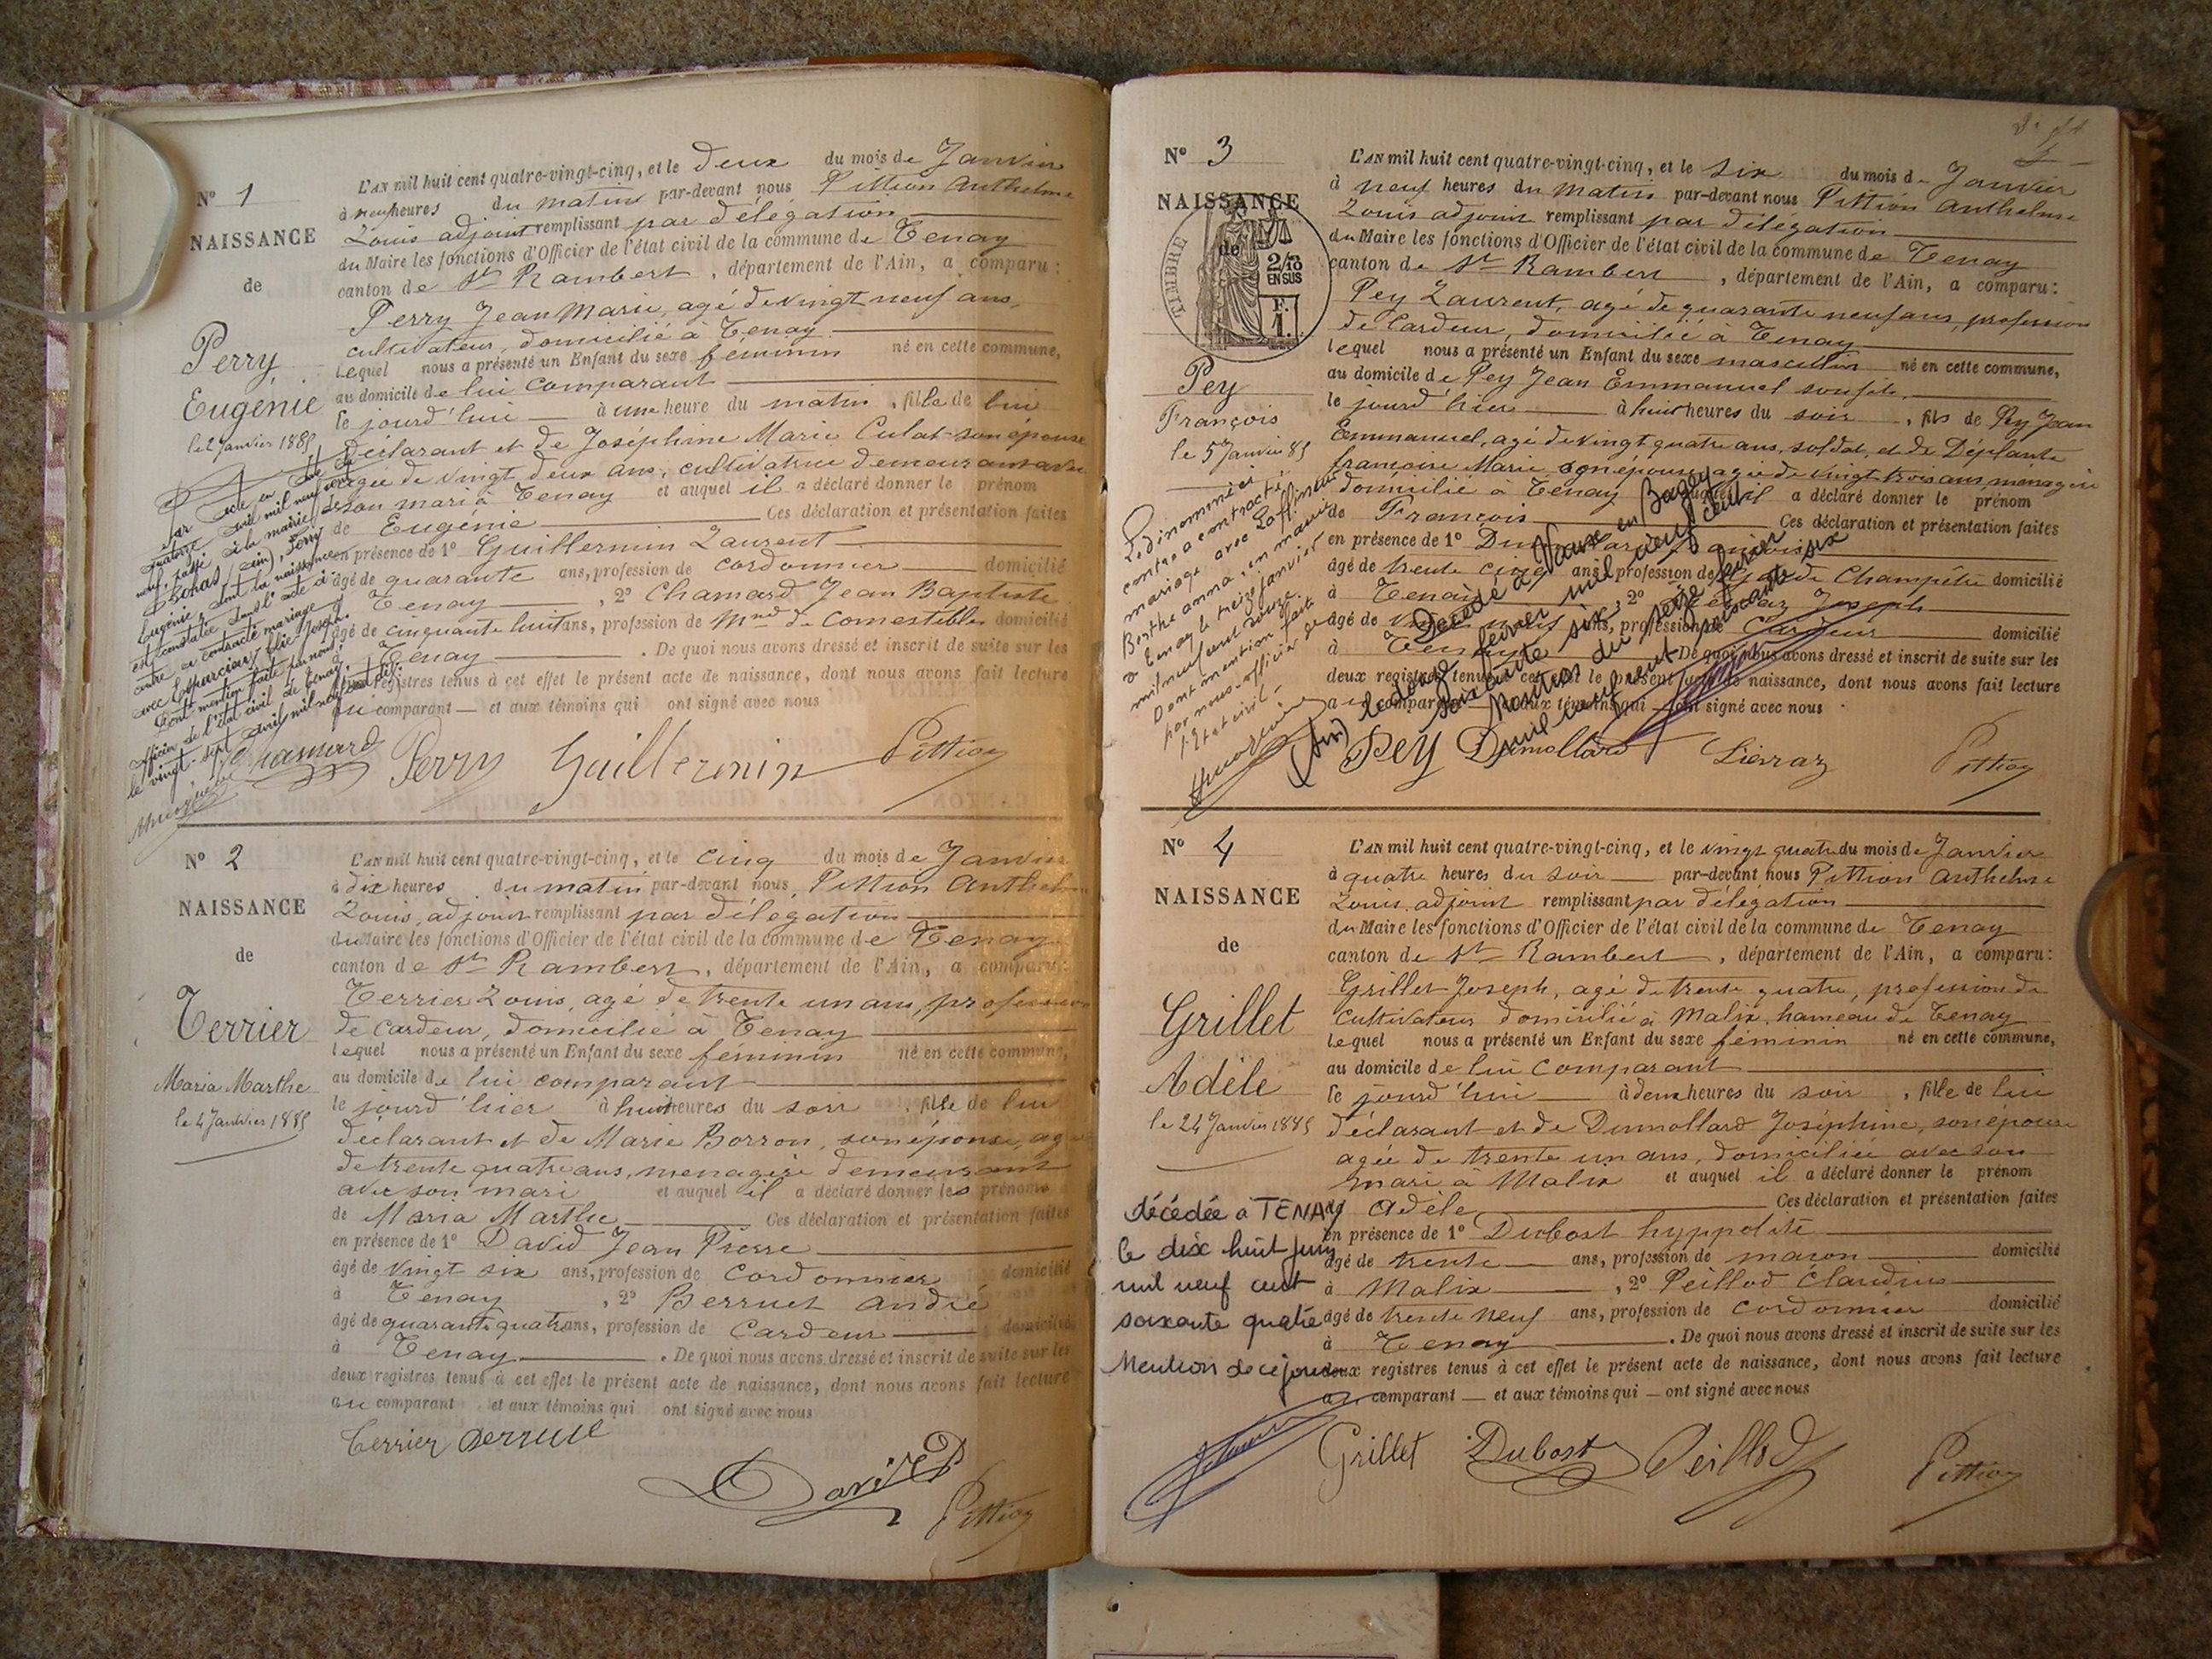 N° 1
NAISSANCE
de
Perry
Eugénie
le 2 Janvier 1885
Par acte en date du
quatorze avril mil neuf cent
neuf, passé à la mairie de
Bohas (Ain), Perry
Eugénie dont la naissance
est constatée dans l'acte ci-
contre a contracté mariage
avec Joseph.
Dont mention faite par nous,
officier de l'état civil de Tenay,
le vingt-sept avril mil neuf cent
L'AN mil huit cent quatre-vingt-cinq, et le deux du mois de Janvier
à neuf heures du matin par-devant nous Pittion Anthelme
Louis adjoint remplissant par délégation
du Maire les fonctions d'Officier de l'état civil de la commune de Tenay
canton de St Rambert, département de l'Ain, a comparu:
Perry Jean Marie, agé de vingt neuf ans,
cultivateur, domicilié à Tenay
lequel nous a présenté un Enfant du sexe féminin né en cette commune,
au domicile de lui comparant
le jourd'hui à une heure du matin, fille de lui
déclarant et de Joséphine Marie Culat son épouse
agée de vingt deux ans, cultivatrice demeurant avec
son mari à Tenay et auquel il a déclaré donner le prénom
de Eugénie Ces déclaration et présentation faites
en présence de 1° Guillermin Laurent
âgé de quarante ans, profession de cordonnier domicilié
à Tenay, 2° Chamard Jean Baptiste
âgé de cinquante huit ans, profession de Mnd de Comestibles domicilié
à Tenay. De quoi nous avons dressé et inscrit de suite sur les
deux registres tenus à cet effet le présent acte de naissance, dont nous avons fait lecture
au comparant et aux témoins qui ont signé avec nous
Chamard Perry Guillermin Pittion
N° 2
NAISSANCE
de
Terrier
Maria Marthe
le 4 Janvier 1885
L'AN mil huit cent quatre-vingt-cinq, et le cinq du mois de Janvier
à dix heures du matin par-devant nous Pittion Anthelme
Louis, adjoint remplissant par délégation
du Maire les fonctions d'Officier de l'état civil de la commune de Tenay
canton de St Rambert, département de l'Ain, a comparu:
Terrier Louis, agé de trente un ans, profession
de cardeur, domicilié à Tenay
lequel nous a présenté un Enfant du sexe féminin né en cette commune,
au domicile de lui comparant
le jourd'hier à huit heures du soir, fille de lui
déclarant et de Marie Borron, son épouse, agée
de trente quatre ans, menagère demeurant
avec son mari et auquel il a déclaré donner les prénoms
de Maria Marthe Ces déclaration et présentation faites
en présence de 1° David Jean Pierre
âgé de vingt six ans, profession de cordonnier domicilié
à Tenay, 2° Berruet André
âgé de quarante quatre ans, profession de Cardeur domicilié
à Tenay. De quoi nous avons dressé et inscrit de suite sur les
deux registres tenus à cet effet le présent acte de naissance, dont nous avons fait lecture
au comparant et aux témoins qui ont signé avec nous
Terrier Berruet
David
Pittion
N° 3
NAISSANCE
de
TIMBRE
2/10
EN SUS
F.
1.
Pey
François
le 5 Janvier 85
Le dénommé ci-
contre a contracté
mariage avec
Berthe Anna, en mairie
à Tenay le treize janvier
mil neuf cent douze.
Dont mention faite
par nous officier de
l'Etat civil.
L'AN mil huit cent quatre-vingt-cinq, et le six du mois de Janvier
à neuf heures du matin par-devant nous Pittion Anthelme
Louis adjoint remplissant par délégation
du Maire les fonctions d'Officier de l'état civil de la commune de Tenay
canton de St Rambert, département de l'Ain, a comparu:
Pey Laurent, agé de quarante neuf ans, profession
de Cardeur, domicilié à Tenay
lequel nous a présenté un Enfant du sexe masculin né en cette commune,
au domicile de Pey Jean Emmanuel son fils,
le jourd'hier à huit heures du soir, fils de Pey Jean
Emmanuel, agé de vingt quatre ans, soldat, et de Déplante
françoise Marie, son épouse, agée de vingt trois ans, ménagère
domicilié à Tenay et auquel il a déclaré donner le prénom
de François Ces déclaration et présentation faites
en présence de 1° Dumollard François
âgé de trente cinq ans, profession de Garde Champêtre domicilié
à Tenay, 2° Joseph
âgé de vingt neuf ans, profession de Cardeur domicilié
à Tenay. De quoi nous avons dressé et inscrit de suite sur les
deux registres tenus à cet effet le présent acte de naissance, dont nous avons fait lecture
au comparant et aux témoins qui ont signé avec nous
Décédé à Vaux en Bugey
(Ain) le douze février mil neuf cent
soixante six,
Mention du seize février
mil neuf cent soixante six
Pey Dumollard Pittion
N° 4
NAISSANCE
de
Grillet
Adèle
le 24 Janvier 1885
décédée à TENAY
le dix huit juin
mil neuf cent
soixante quatre
Mention de ce jour
L'AN mil huit cent quatre-vingt-cinq, et le vingt quatre du mois de Janvier
à quatre heures du soir par-devant nous Pittion Anthelme
Louis, adjoint remplissant par délégation
du Maire les fonctions d'Officier de l'état civil de la commune de Tenay
canton de St Rambert, département de l'Ain, a comparu:
Grillet Joseph, agé de trente quatre, profession de
Cultivateur domicilié à Malix, hameau de Tenay
lequel nous a présenté un Enfant du sexe féminin né en cette commune,
au domicile de lui Comparant
le jourd'hui à deux heures du soir, fille de lui
déclarant et de Dumollard Joséphine, son épouse
agée de trente un ans, domiciliée avec son
mari à Malix et auquel il a déclaré donner le prénom
de Adèle Ces déclaration et présentation faites
en présence de 1° Dubost hyppolite
âgé de trente ans, profession de maçon domicilié
à Malix, 2° Peillod Claudius
âgé de trente neuf ans, profession de Cordonnier domicilié
à Tenay. De quoi nous avons dressé et inscrit de suite sur les
deux registres tenus à cet effet le présent acte de naissance, dont nous avons fait lecture
au comparant et aux témoins qui ont signé avec nous
Grillet Dubost Peillod Pittion